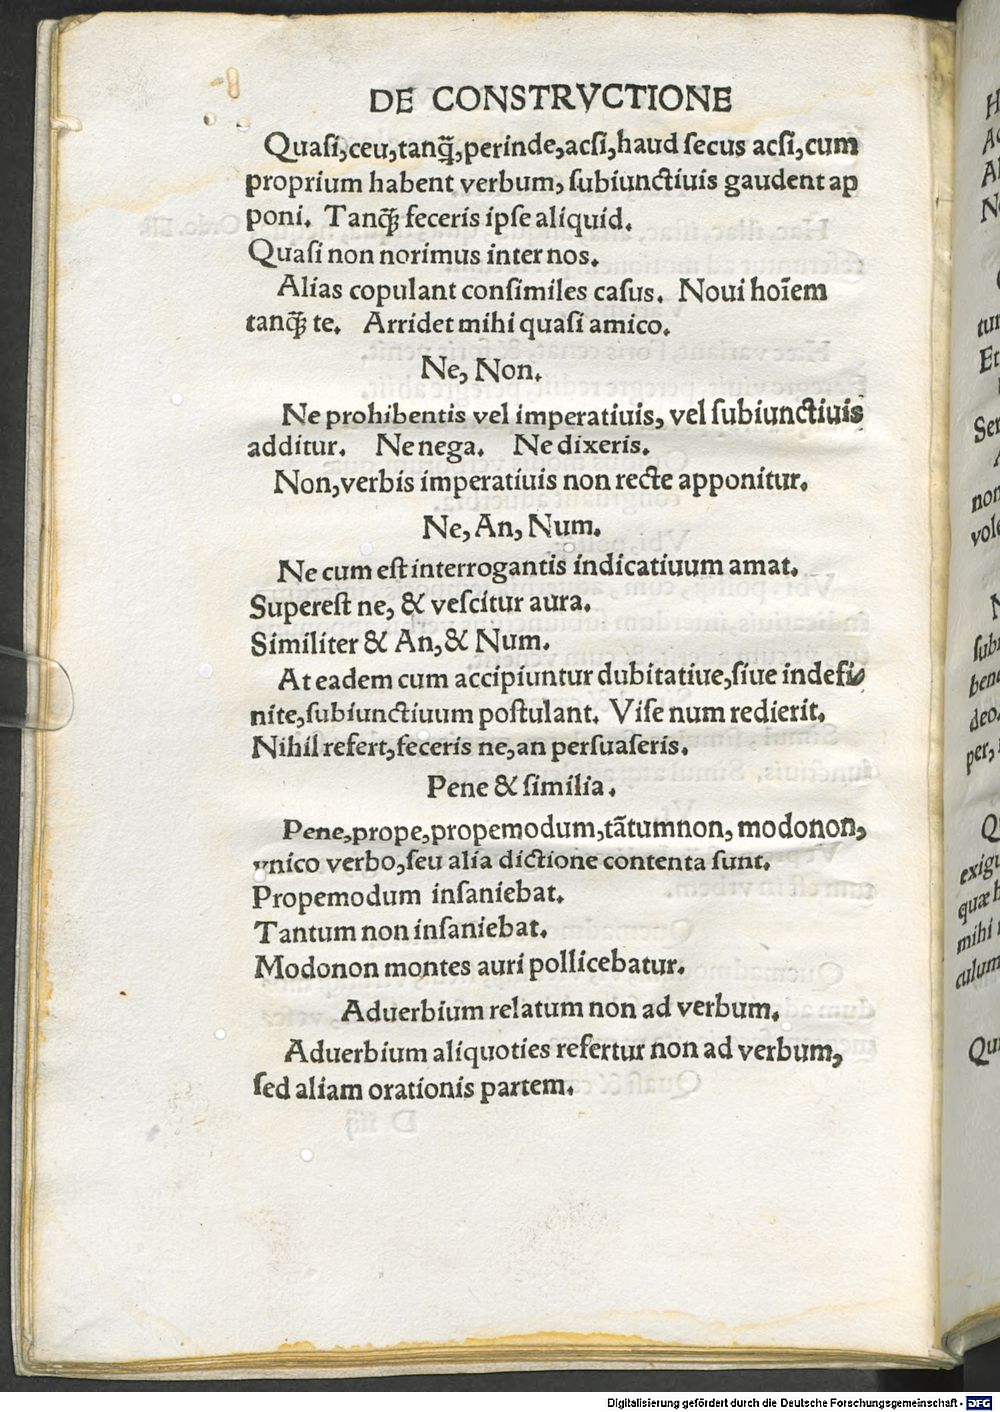 DE CONSTRVCTIONE
Quaſi, ceu, tanq̃, perinde, acſi, haud ſecus acſi, cum
proprium habent verbum, ſubiunctiuis gaudent ap
poni. Tanqꝫ̃ feceris ipſe aliquid.
Quaſi non norimus inter nos.
Alias copulant conſimiles caſus. Noui hoĩem
tanqꝫ̃ te. Arridet mihi quaſi amico.
Ne, Non.
Ne prohibentis vel imperatiuis, vel ſubiunctiuis
additur. Ne nega. Ne dixeris.
Non, verbis imperatiuis non recte apponitur.
Ne, An, Num.
Ne cum eſt interrogantis indicatiuum amat.
Supereſt ne, & veſcitur aura.
Similiter & An, & Num.
At eadem cum accipiuntur dubitatiue, ſiue indefi
nite, ſubiunctiuum poſtulant. Viſe num redierit.
Nihil refert, feceris ne, an perſuaſeris.
Pene & ſimilia.
Pene, prope, propemodum, tãtumnon, modonon,
vnico verbo, ſeu alia dictione contenta ſunt.
Propemodum inſaniebat.
Tantum non inſaniebat.
Modonon montes auri pollicebatur.
Aduerbium relatum non ad verbum.
Aduerbium aliquoties refertur non ad verbum,
ſed aliam orationis partem.
Digitalisierung gefördert durch die Deutsche Forschungsgemeinschaft - DFG